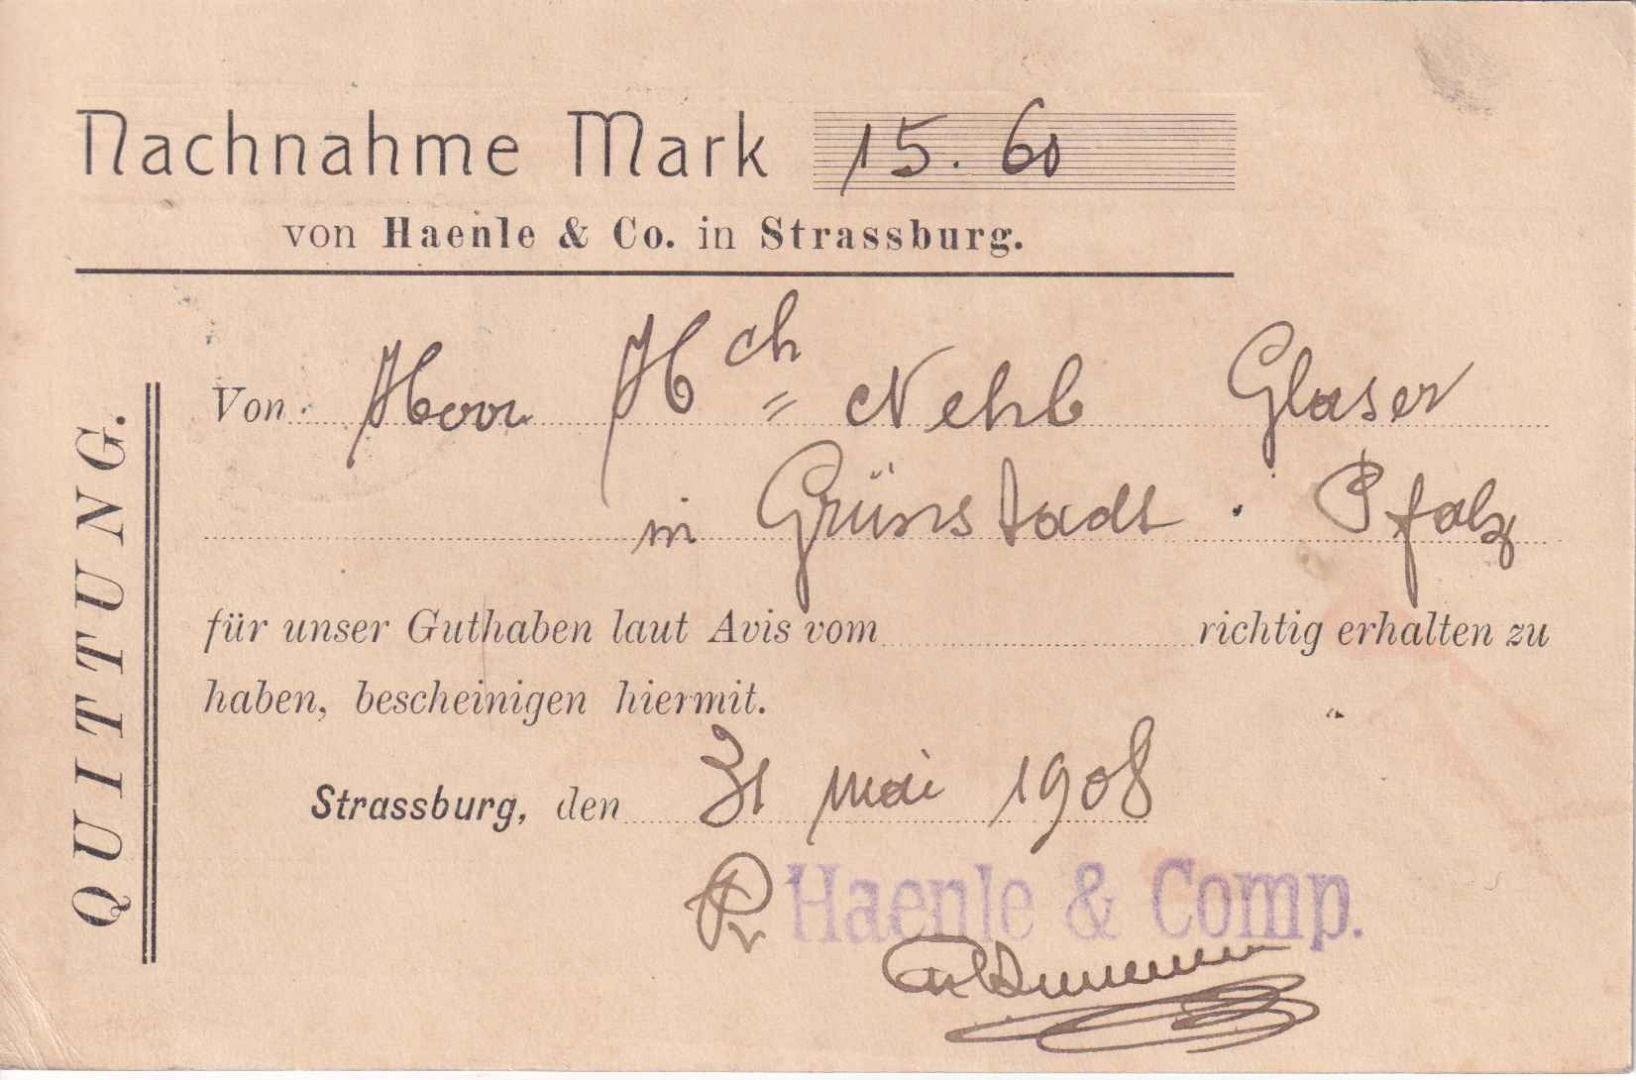 Nachnahme Mark 15.60
von Haenle & Co. in Strassburg.
QUITTUNG.
Von Herrn Hch Nehb Glaser
in Grünstadt . Pfalz
für unser Guthaben laut Avis vom richtig erhalten zu
haben, bescheinigen hiermit.
Strassburg, den 31 Mai 1908
Pr Haenle & Comp.